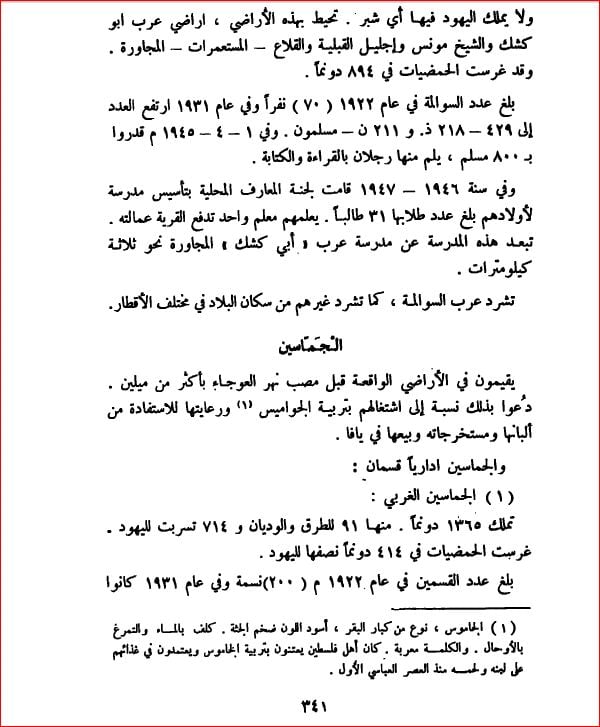 ولا يملك اليهود فيها أي شبر . تحيط بهذه الأراضي ، اراضي عرب ابو
كشك والشيخ مونس وإجليل القبلية والقلاع – المستعمرات – المجاورة .
وقد غرست الحمضيات في ٨٩٤ دونماً .
بلغ عدد السوالمة في عام ١٩٢٢ ( ٧٠ ) نفراً وفي عام ١٩٣١ ارتفع العدد
إلى ٤٢٩ – ٢١٨ ذ. و ٢١١ ن – مسلمون . وفي ١ – ٤ – ١٩٤٥ م قدروا
بـ ٨٠٠ مسلم ، يلم منها رجلان بالقراءة والكتابة .
وفي سنة ١٩٤٦ – ١٩٤٧ قامت لجنة المعارف المحلية بتأسيس مدرسة
لأولادهم بلغ عدد طلابها ٣١ طالباً . يعلمهم معلم واحد تدفع القرية عمالته .
تبعد هذه المدرسة عن مدرسة عرب « أبي كشك » المجاورة نحو ثلاثة
كيلومترات .
تشرد عرب السوالمة ، كما تشرد غيرهم من سكان البلاد في مختلف الأقطار.
الْجَمّاسين
يقيمون في الأراضي الواقعة قبل مصب نهر العوجاء بأكثر من ميلين .
دُعوا بذلك نسبة إلى اشتغالهم بتربية الجواميس (١) ورعايتها للاستفادة من
ألبانها ومستخرجاته وبيعها في يافا .
والجماسين ادارياً قسمان :
( ١ ) الجماسين الغربي :
تملك ١٣٦٥ دونماً . منها ٩١ للطرق والوديان و ٧١٤ تسربت لليهود .
غرست الحمضيات في ٤١٤ دونماً نصفها لليهود .
بلغ عدد القسمين في عام ١٩٢٢ م ( ٢٠٠)نسمة وفي عام ١٩٣١ كانوا
( ١ ) الجاموس ، نوع من كبار البقر ، أسود اللون ضخم الجثة . كلف بالماء والتمرغ
بالأوحال . والكلمة معربة . كان أهل فلسطين يعتنون بتربية الجاموس ويعتمدون في غذائهم
على لبنه ولحمه منذ العصر العباسي الأول .
٣٤١